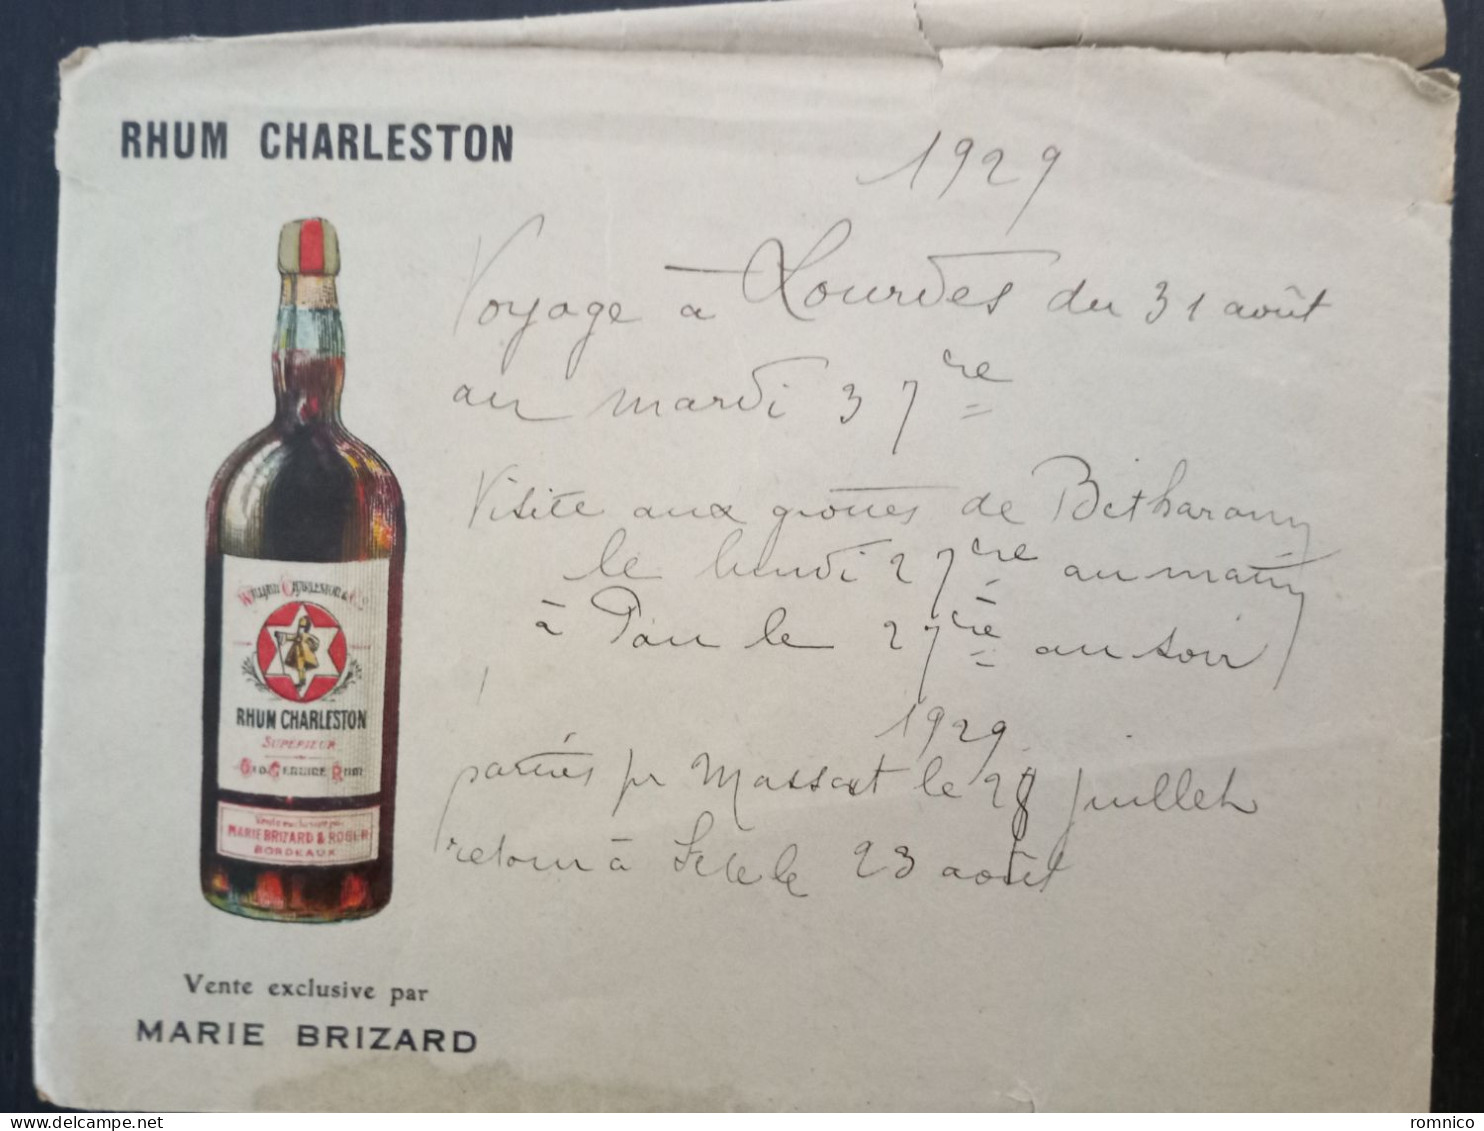 RHUM CHARLESTON
1929
Voyage à Lourdes du 31 août
au mardi 3 7re
Visite aux grottes de Betharam
le lundi 2 7re au matin
à Pau le 2 7re au soir
1929
parties pr Massat le 28 juillet
retour à le 23 août
WILLIAM CHARLESTON & Co
RHUM CHARLESTON
SUPÉRIEUR
OLD GENUINE RUM
Vente exclusive par
MARIE BRIZARD & ROGER
BORDEAUX
Vente exclusive par
MARIE BRIZARD
romnico